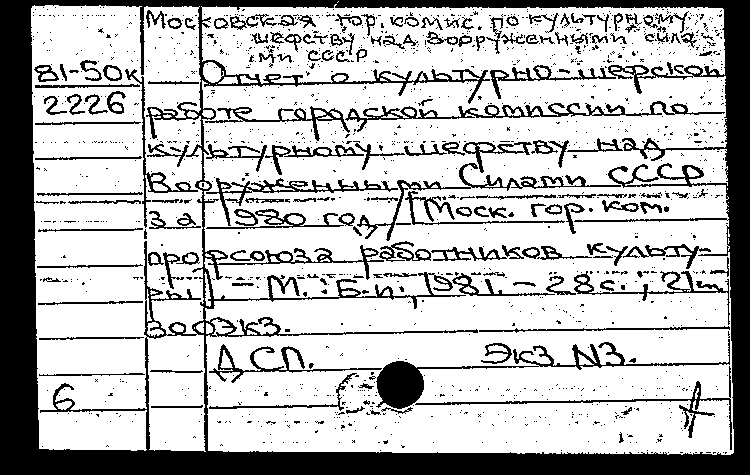 Московская гор. комис. по культурному
шефству над Вооруженными сила-
ми СССР.
81-50к
Отчет о культурно-шефской
2226
работе городской комиссии по
культурному шефству над
Вооруженными Силами СССР
за 1980 год / [Моск. гор. ком.
профсоюза работников культу-
ры]. - М. : Б.и., 1981. - 28с. ; 21см
300экз.
ДСП. Экз. N3.
6